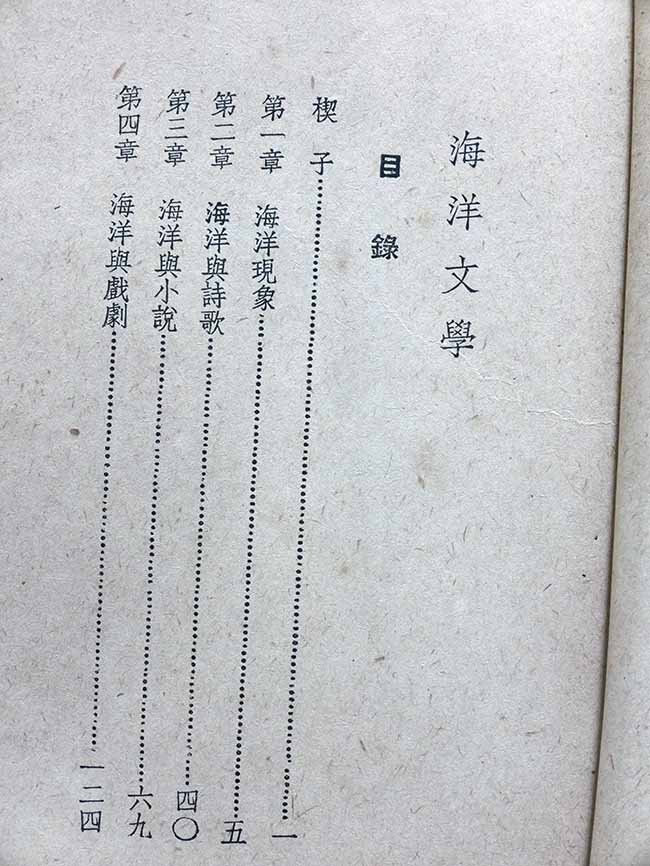 海洋文學
目錄
楔子⋯⋯⋯⋯⋯⋯⋯⋯⋯⋯⋯⋯一
第一章 海洋現象⋯⋯⋯⋯⋯⋯⋯⋯⋯⋯⋯⋯五
第二章 海洋與詩歌⋯⋯⋯⋯⋯⋯⋯⋯⋯⋯⋯⋯四〇
第三章 海洋與小說⋯⋯⋯⋯⋯⋯⋯⋯⋯⋯⋯⋯六九
第四章 海洋與戲劇⋯⋯⋯⋯⋯⋯⋯⋯⋯⋯⋯⋯一二四